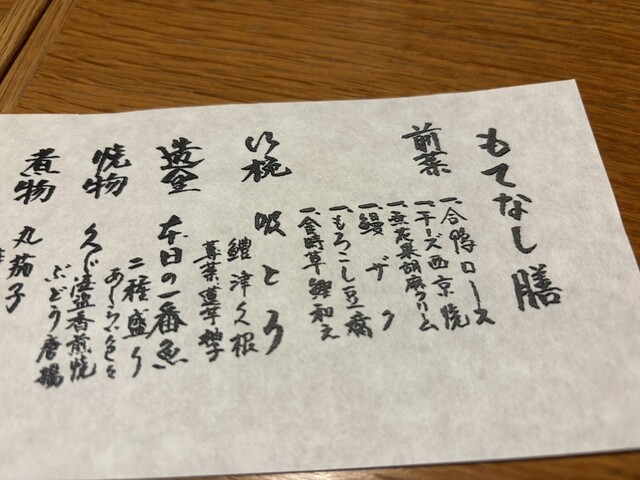 もてなし膳
前菜
一、合鴨ロース
一、チーズ西京焼
一、無花果胡麻クリーム
一、鰻ザク
一、もろこし豆腐
一、金時草鰹和え
吸とろ
鱧 津久根
蓴菜 蓮芋 柚子
造里
本日の一番魚
二種盛り
あしらい色々
焼物
ぶどう唐揚
煮物
丸茄子